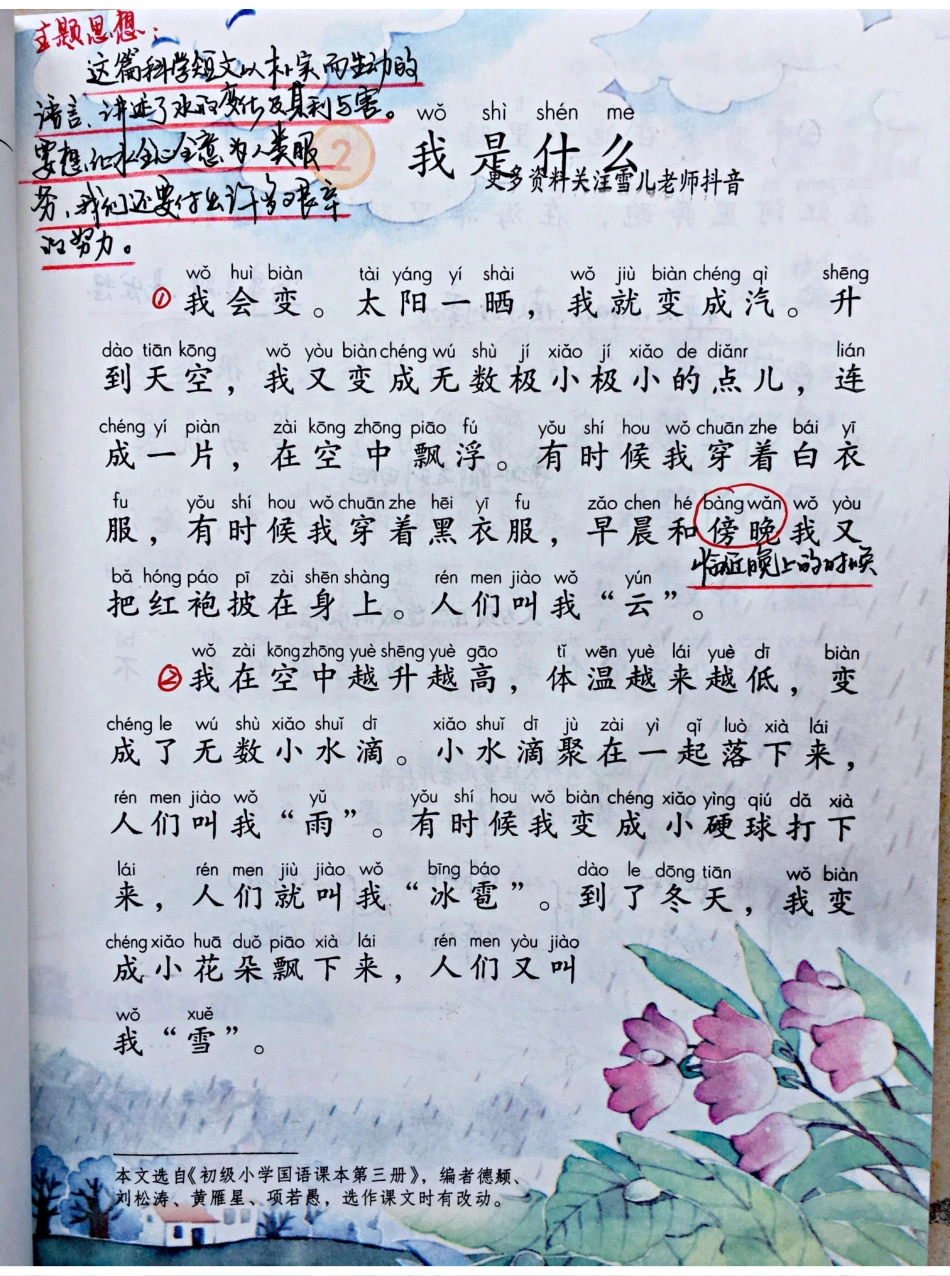 主题思想：
这篇科学短文以朴实而生动的
语言、讲述了水的变化及其利与害。
要想让水全心全意为人类服
务，我们还要付出许多艰辛
的努力。
2
wǒ shì shén me
我是什么
更多资料关注雪儿老师抖音
wǒ huì biàn tài yáng yí shài wǒ jiù biàn chéng qì shēng
①我会变。太阳一晒，我就变成汽。升
dào tiān kōng wǒ yòu biàn chéng wú shù jí xiǎo jí xiǎo de diǎnr lián
到天空，我又变成无数极小极小的点儿，连
chéng yí piàn zài kōng zhōng piāo fú yǒu shí hou wǒ chuān zhe bái yī
成一片，在空中飘浮。有时候我穿着白衣
fu yǒu shí hou wǒ chuān zhe hēi yī fu zǎo chen hé bàng wǎn wǒ yòu
服，有时候我穿着黑衣服，早晨和傍晚我又
临近晚上的时候
bǎ hóng páo pī zài shēn shàng rén men jiào wǒ yún
把红袍披在身上。人们叫我“云”。
wǒ zài kōng zhōng yuè shēng yuè gāo tǐ wēn yuè lái yuè dī biàn
②我在空中越升越高，体温越来越低，变
chéng le wú shù xiǎo shuǐ dī xiǎo shuǐ dī jù zài yì qǐ luò xià lái
成了无数小水滴。小水滴聚在一起落下来，
rén men jiào wǒ yǔ yǒu shí hou wǒ biàn chéng xiǎo yìng qiú dǎ xià
人们叫我“雨”。有时候我变成小硬球打下
lái rén men jiù jiào wǒ bīng báo dào le dōng tiān wǒ biàn
来，人们就叫我“冰雹”。到了冬天，我变
chéng xiǎo huā duǒ piāo xià lái rén men yòu jiào
成小花朵飘下来，人们又叫
wǒ xuě
我“雪”。
本文选自《初级小学国语课本第三册》，编者德颖、
刘松涛、黄雁星、项若愚，选作课文时有改动。